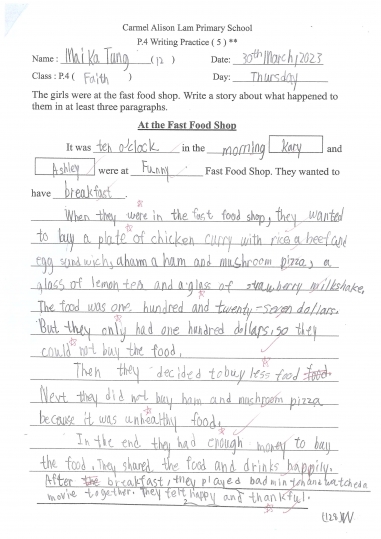 Carmel Alison Lam Primary School
P.4 Writing Practice ( 5 ) **
Name : Mai Ka Tung (12) Date: 30th March, 2023
Class : P.4 ( Faith ) Day: Thursday
The girls were at the fast food shop. Write a story about what happened to
them in at least three paragraphs.
At the Fast Food Shop
It was ten o'clock in the morning Kary and
Ashley were at Funny Fast Food Shop. They wanted to
have breakfast.
When they were in the fast food shop, they wanted
to buy a plate of chicken curry with rice, a beef and
egg sandwich, a ham and mushroom pizza, a
glass of lemon tea and a glass of strawberry milkshake.
The food was one hundred and twenty-seven dollars.
But they only had one hundred dollars, so they
could not buy the food.
Then they decided to buy less food
Next they did not buy ham and muchroom pizza
because it was unhealthy food.
In the end they had enough money to buy
the food. They shared the food and drinks happily.
After breakfast, they played badminton and watched a
movie together. They felt happy and thankful.